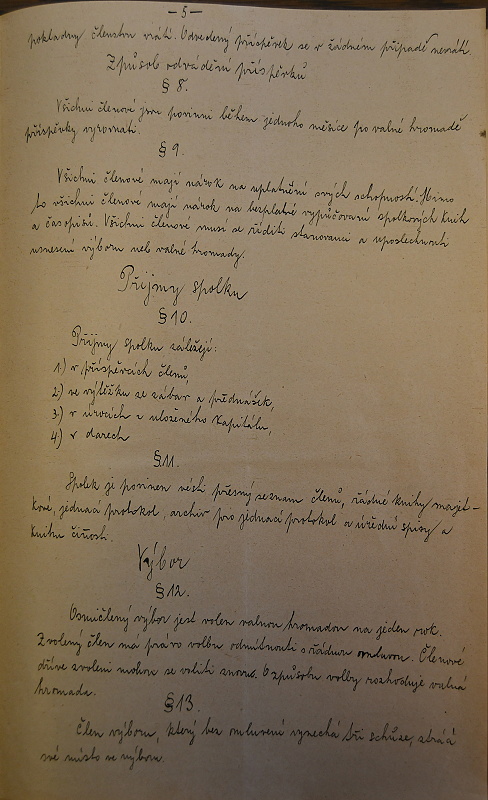 - 5 -
pokladny členstvu vrátí. Odvedený příspěvek se v žádném případě nevrátí.
Způsob odvádění příspěvků
§ 8.
Všichni členové jsou povinni během jednoho měsíce po valné hromadě
příspěvky vyrovnati.
§ 9.
Všichni členové mají nárok na uplatnění svých schopností. Mimo
to všichni členové mají nárok na bezplatné vypůjčování spolkových knih
a časopisů. Všichni členové musí se říditi stanovami a uposlechnouti
usnesení výboru neb valné hromady.
Příjmy spolku
§ 10.
Příjmy spolku záležejí:
1.) v příspěvcích členů,
2.) ve výtěžku ze zábav a přednášek,
3.) v úrocích z uloženého kapitálu,
4.) v darech
§ 11.
Spolek je povinen vésti přesný seznam členů, řádné knihy majet-
kové, jednací protokol, archiv pro jednací protokol a úřední spisy a
knihu činnosti.
Výbor
§ 12.
Osmičlený výbor jest volen valnou hromadou na jeden rok.
Zvolený člen má právo volbu odmítnouti s řádnou omluvou. Členové
dříve zvolení mohou se voliti znovu. O způsobu volby rozhoduje valná
hromada.
§ 13.
Člen výboru, který bez omluvení vynechá tři schůze, ztrácí
své místo ve výboru.